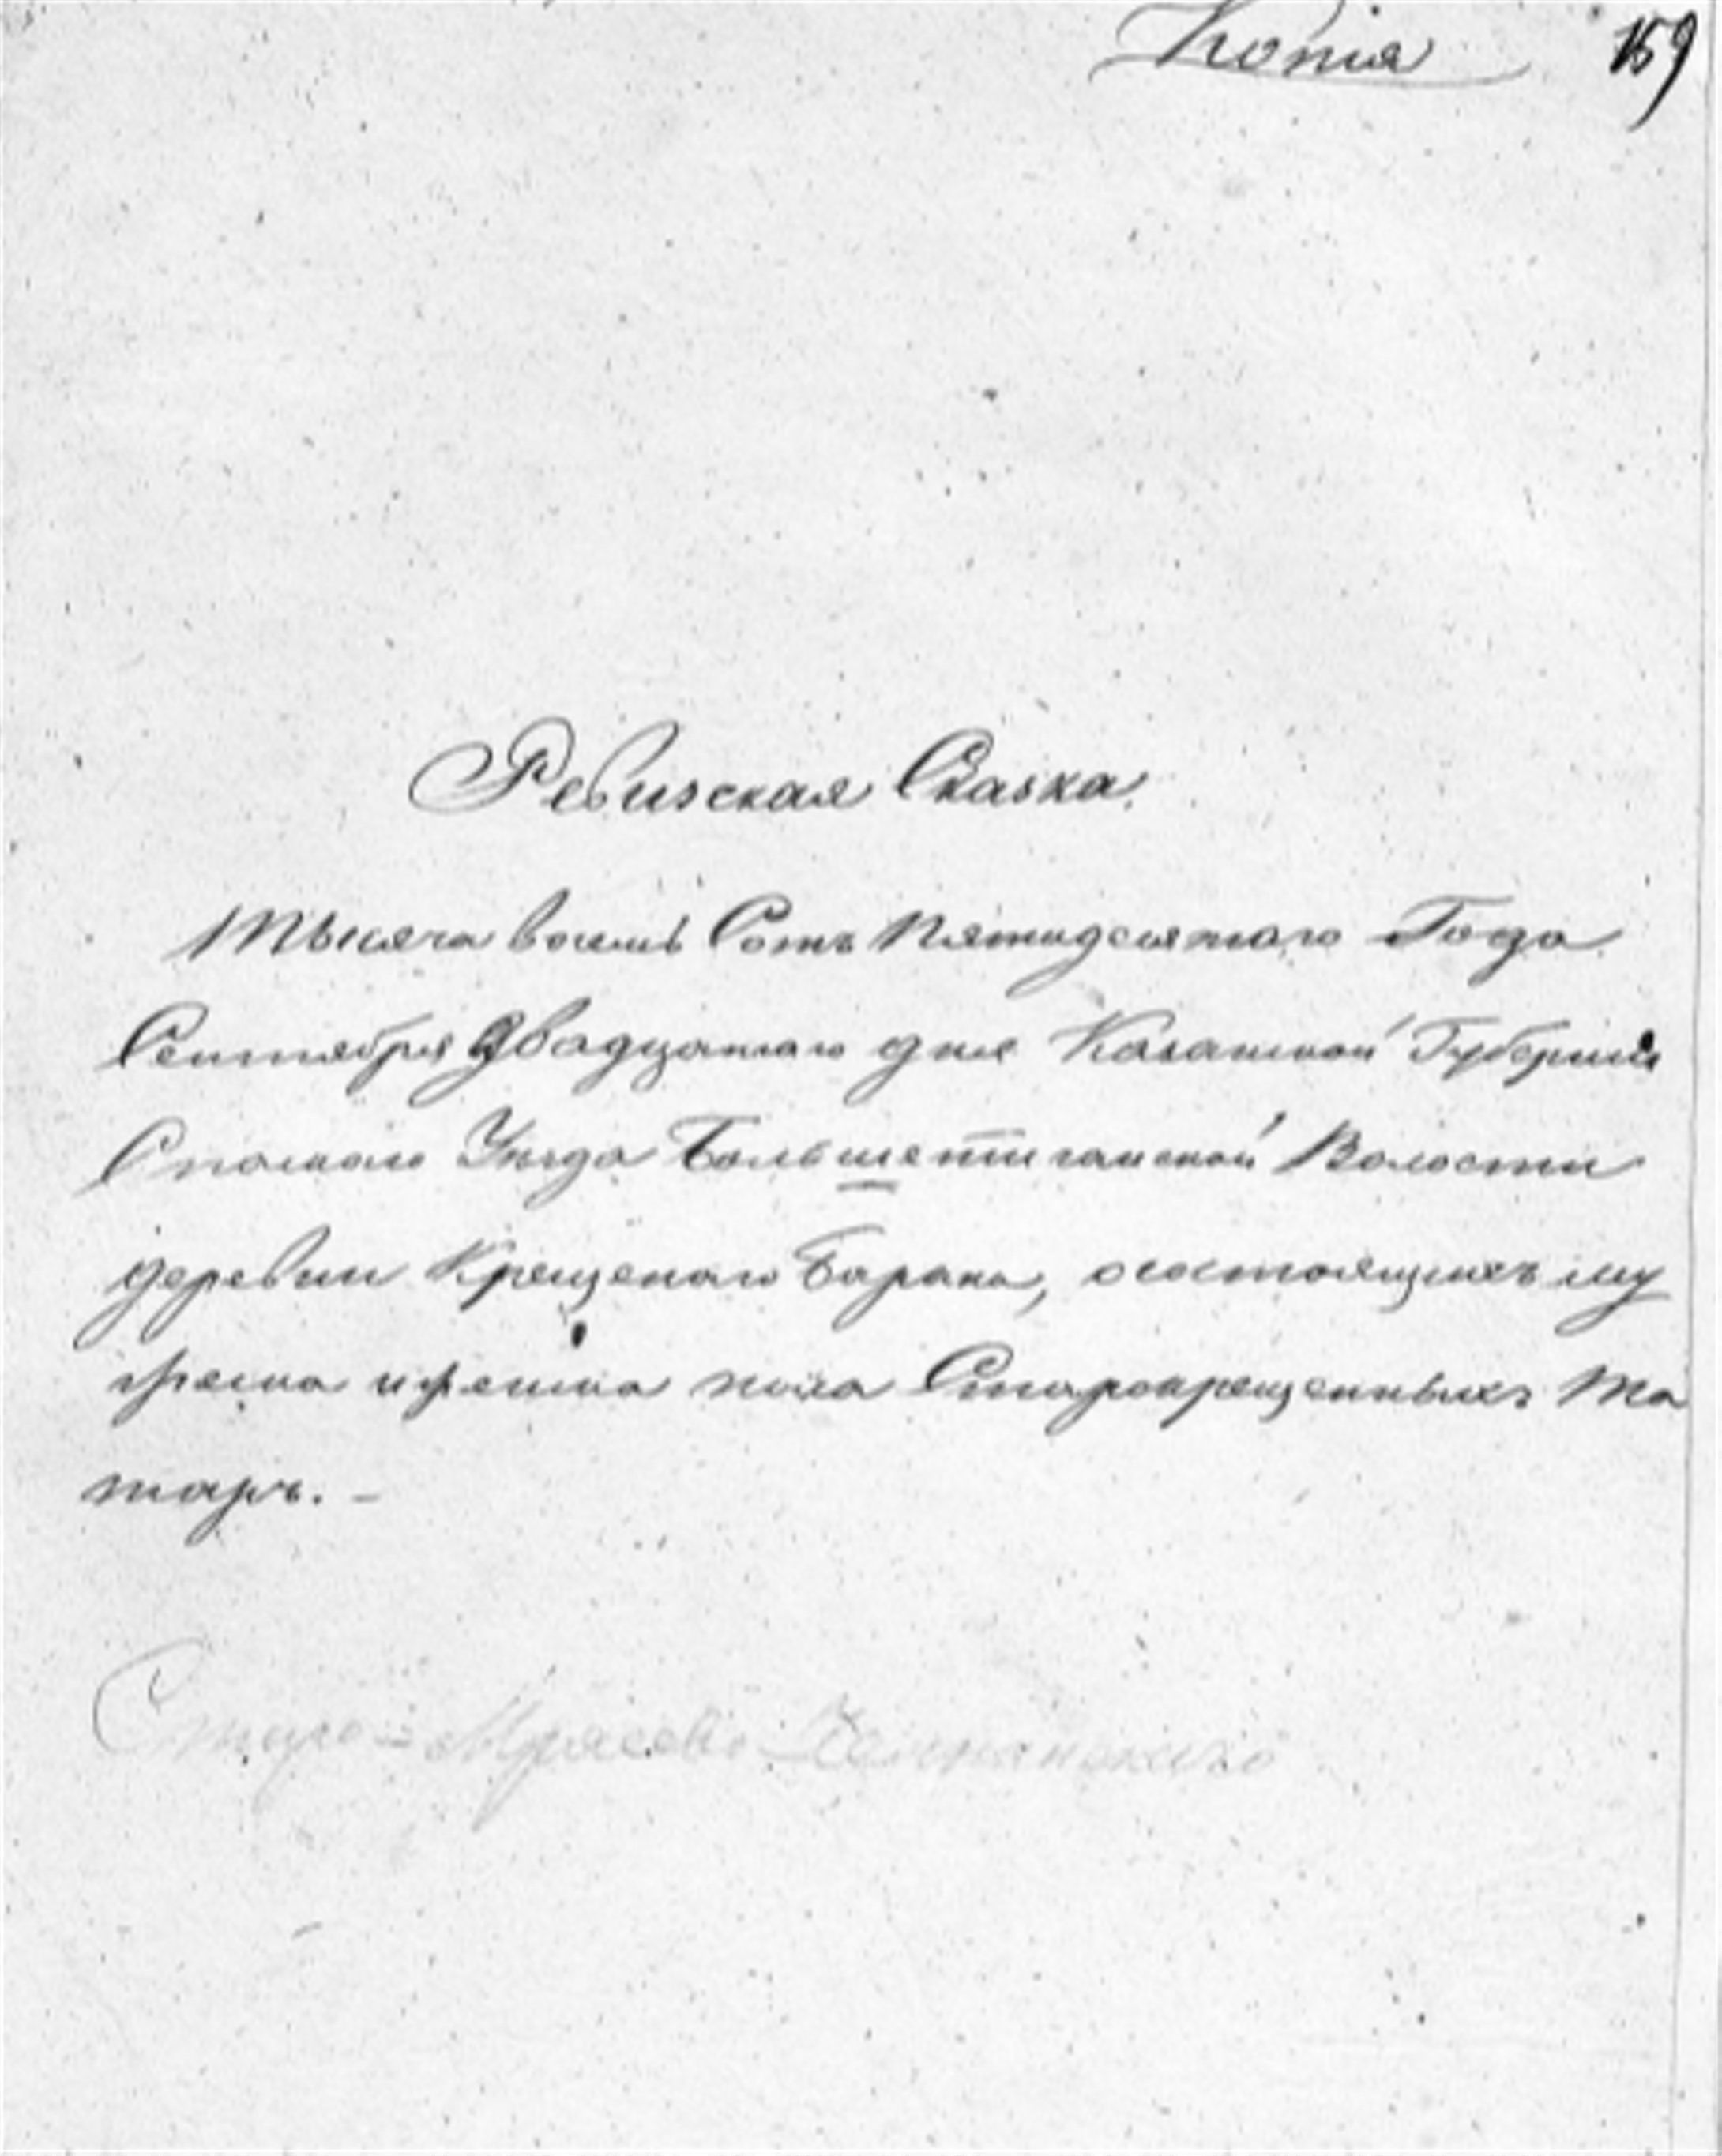 Копія 159
Ревизская Сказка.
Тысяча восемь Сотъ Пятидесятаго Года
Сентября Двадцатаго дня Казанской Губерніи
Спаскаго Уѣзда Большетиганской Волости
деревни Крещенаго Барана, о состоящихъ му
жеска и женска пола Старокрещенныхъ Та
таръ. –
Старо-Мрясево